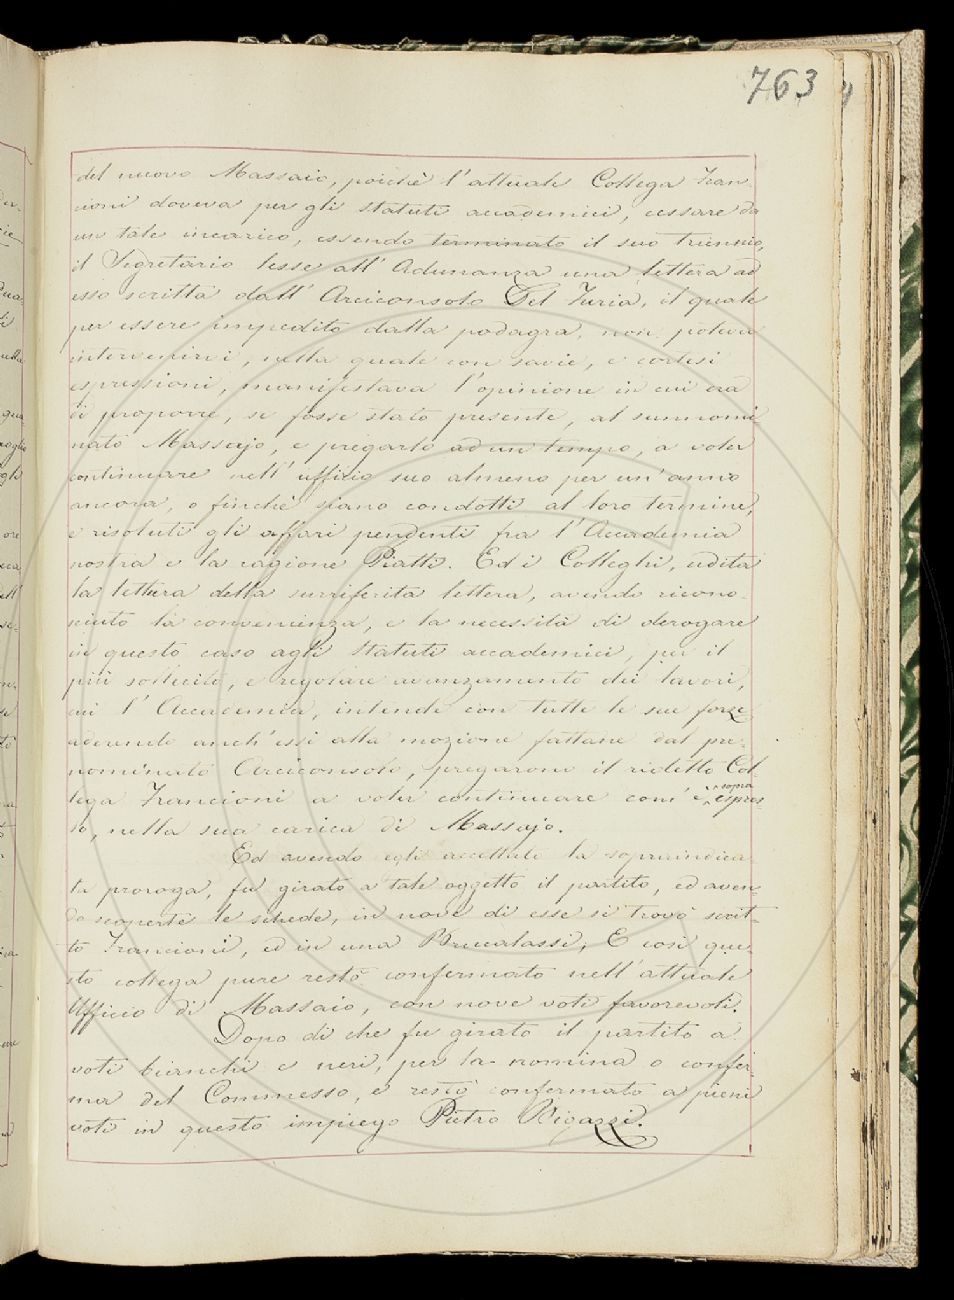 763
del nuovo Massaio, poichè l'attuale Collega Fran-
cioni doveva per gli statuti accademici, cessare da
un tale incarico, essendo terminato il suo triennio,
il Segretario lesse all'Adunanza una lettera ad
esso scritta dall'Arciconsolo Del Furia, il quale
per essere impedito dalla podagra, non poteva
intervenirvi, nella quale con savie, e cortesi
espressioni, manifestava l'opinione in cui era
di proporre, se fosse stato presente, al sunnomi-
nato Massajo, e pregarlo ad un tempo, a voler
continuare nell'uffizio suo almeno per un'anno
ancora, o finchè siano condotti al loro termine,
e risoluti gli affari pendenti fra l'Accademia
nostra e la ragione Piatti. Ed i Colleghi, udita
la lettura della surriferita lettera, avendo ricono-
sciuto la convenienza, e la necessità di derogare
in questo caso agli statuti accademici, per il
più sollecito, e regolare avanzamento dei lavori,
cui l'Accademia, intende con tutte le sue forze
aderendo anch'essi alla mozione fattane dal pre-
nominato Arciconsolo, pregarono il ridetto Col-
lega Francioni a voler continuare com'è sopra espres-
so, nella sua carica di Massajo.
Ed avendo egli accettato la sopraindica-
ta proroga, fu girato a tale oggetto il partito, ed aven-
do scoperte le schede, in nove di esse si trovò scrit-
to Francioni, ed in una Brucalassi, E così que-
sto collega pure restò confermato nell'attuale
Uffício di Massaio, con nove voti favorevoli.
Dopo di che fu girato il partito a
voti bianchi e neri, per la nomina o confer-
ma del Commesso, e restò confermato a pieni
voti in questo impiego Pietro Rigazzi.